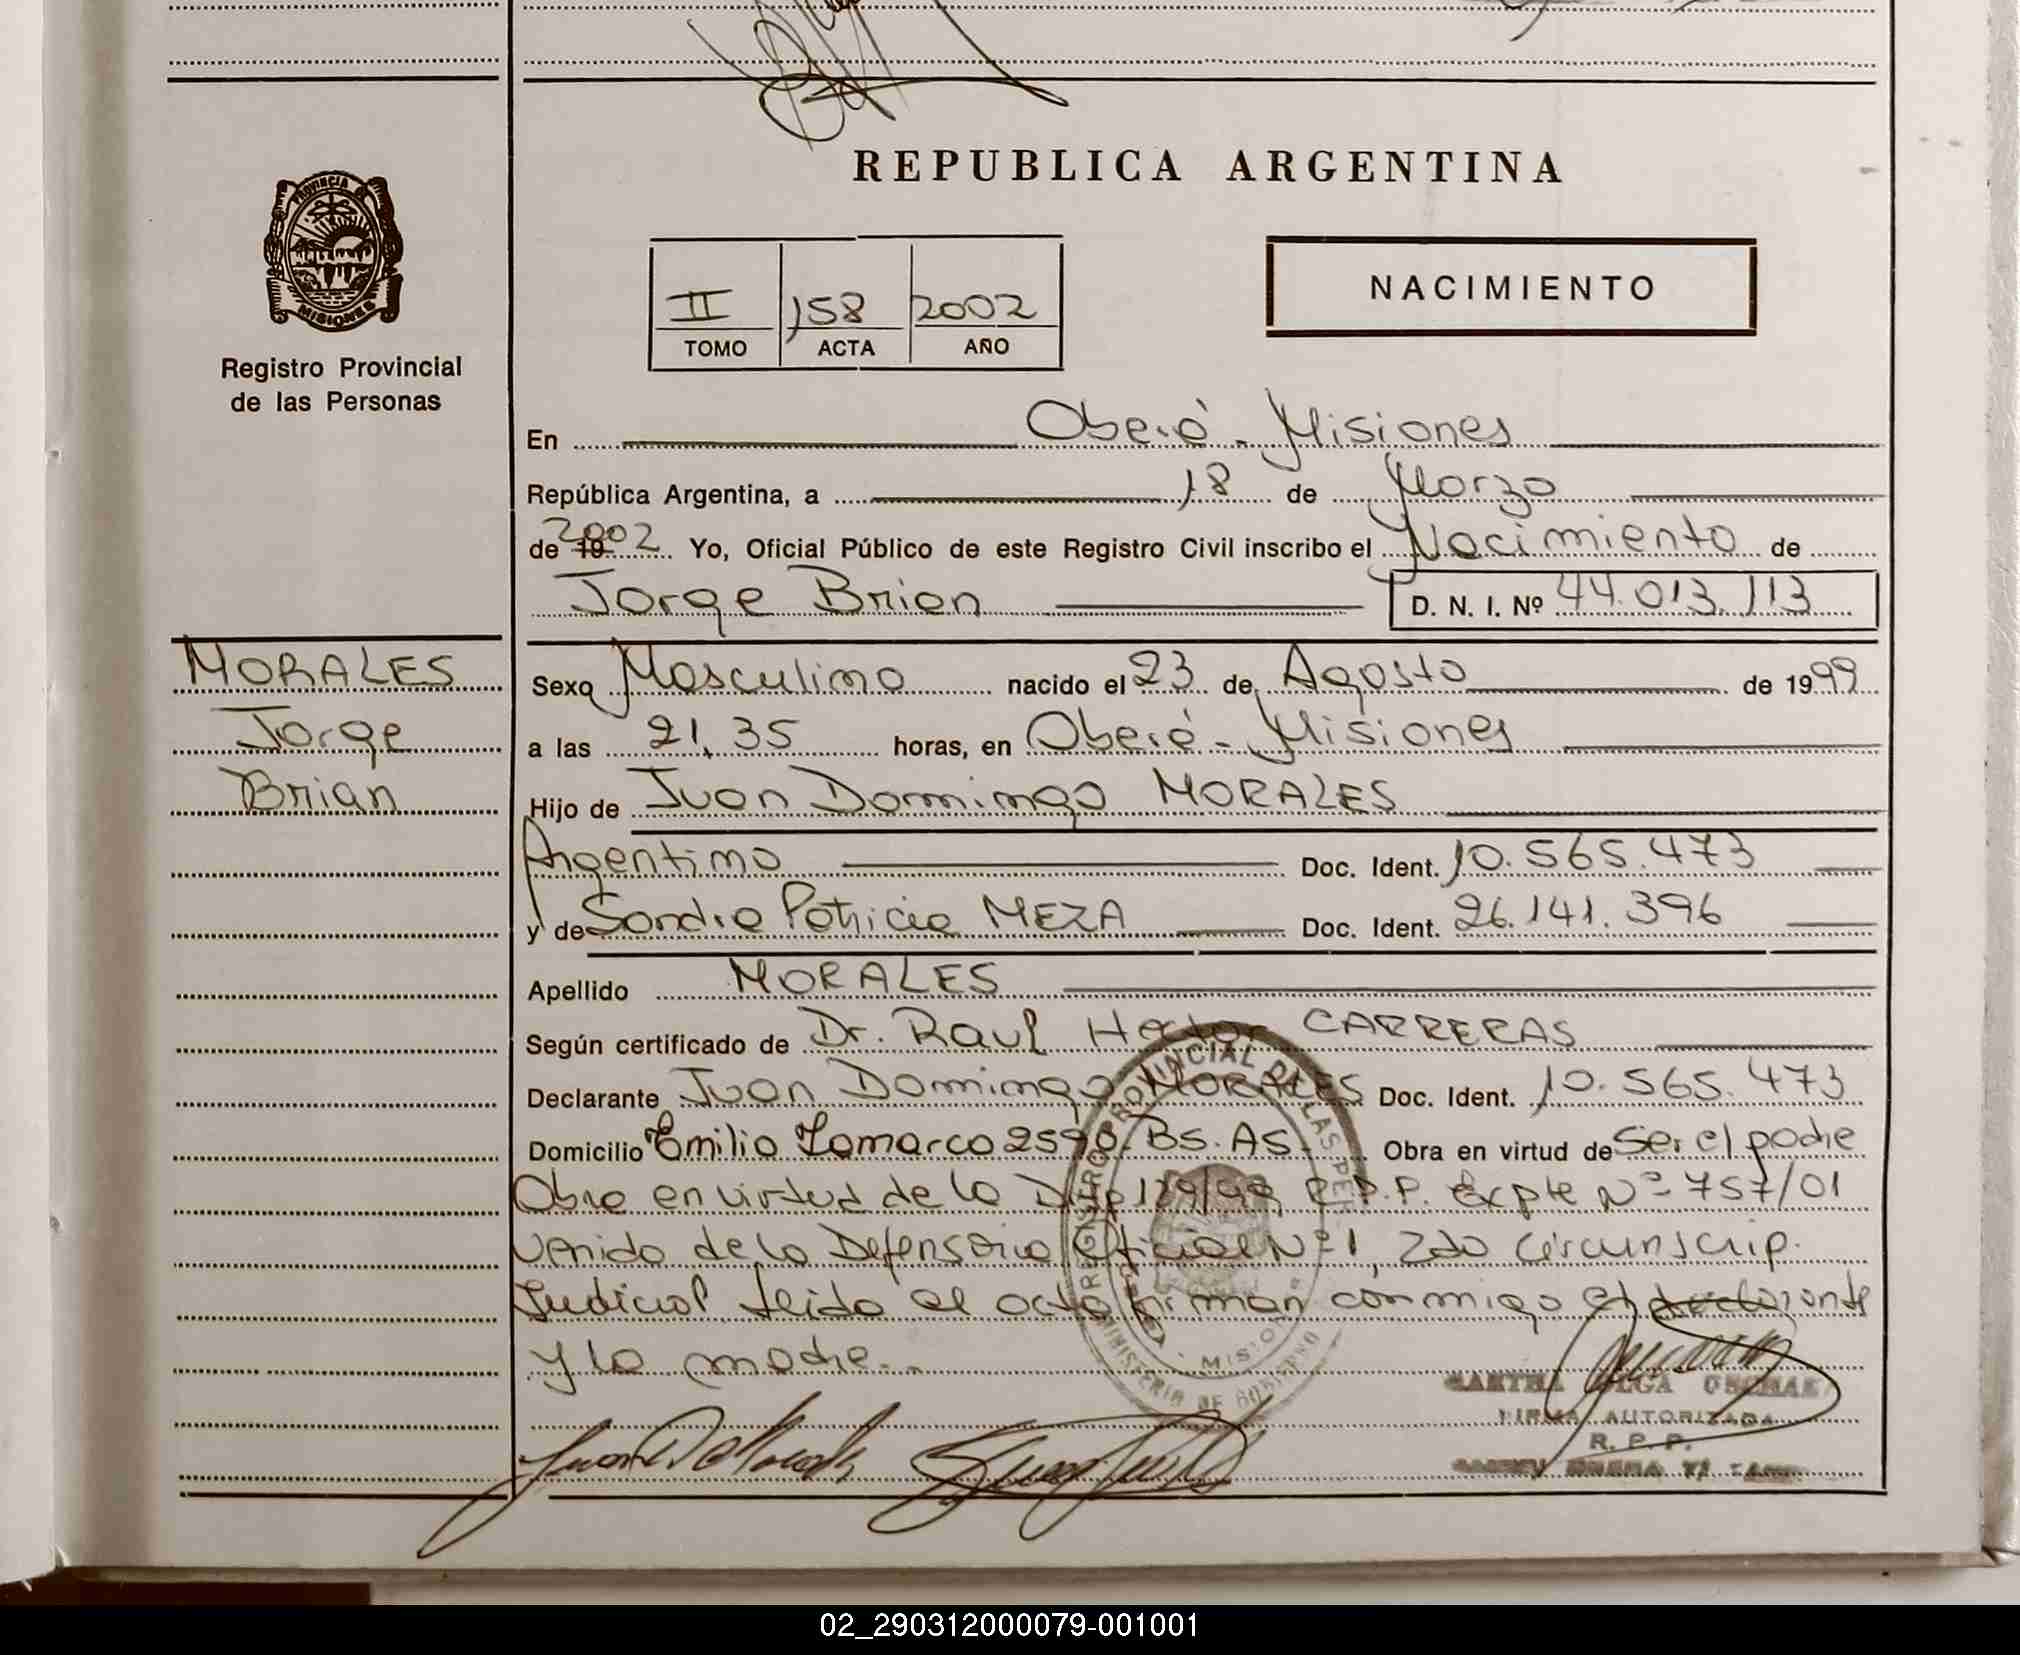 REPUBLICA ARGENTINA
PROVINCIA
MISIONES
Registro Provincial
de las Personas
II 158 2002
TOMO ACTA AÑO
NACIMIENTO
En Oberá - Misiones
República Argentina, a 18 de Marzo
de 19 2002 Yo, Oficial Público de este Registro Civil inscribo el Nacimiento de
Jorge Brian D. N. I. Nº 44.013.113
MORALES
Jorge
Brian
Sexo Masculino nacido el 23 de Agosto de 1999
a las 21,35 horas, en Oberá - Misiones
Hijo de Juan Domingo MORALES
Argentino Doc. Ident. 10.565.473
y de Sandra Patricia MEZA Doc. Ident. 26.141.396
Apellido MORALES
Según certificado de Dr. Raul Hector CARRERAS
Declarante Juan Domingo MORALES Doc. Ident. 10.565.473
Domicilio Emilio Lamarca 2590 BS. AS. Obra en virtud de Ser el padre
Obra en virtud de la Disp 129/99 R.P.P. Expte Nº 757/01
venido de la Defensoria Oficial Nº 1, 2da Circunscrip.
Judicial leida el acta firman conmigo el declarante
y la madre..
REGISTRO PROVINCIAL DE LAS PER
MINISTERIO DE GOBIERNO
MISIO
FIRMA AUTORIZADA
R. P. P.
02_290312000079-001001